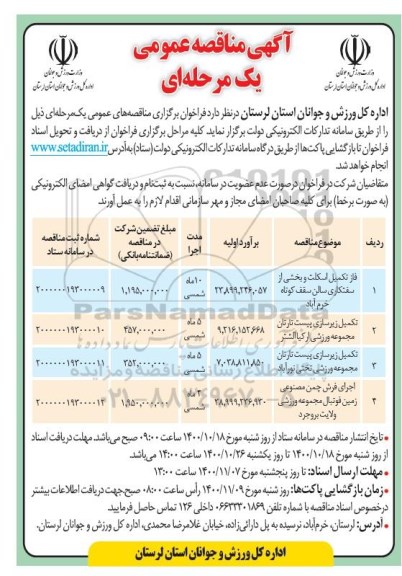 آگهی مناقصه عمومی
یک مرحله‌ای
وزارت ورزش و جوانان
اداره کل ورزش و جوانان استان لرستان
وزارت ورزش و جوانان
اداره کل ورزش و جوانان استان لرستان
اداره کل ورزش و جوانان استان لرستان درنظر دارد فراخوان برگزاری مناقصه‌های عمومی یک‌مرحله‌ای ذیل
را از طریق سامانه تدارکات الکترونیکی دولت برگزار نماید. کلیه مراحل برگزاری فراخوان از دریافت و تحویل اسناد
فراخوان تا بازگشایی پاکت‌ها از طریق درگاه سامانه تدارکات الکترونیکی دولت (ستاد) به آدرس www.setadiran.ir
انجام خواهد شد.
متقاضیان شرکت در فراخوان درصورت عدم عضویت در سامانه، نسبت به ثبت‌نام و دریافت گواهی امضای الکترونیکی
(به صورت برخط) برای کلیه صاحبان امضای مجاز و مهر سازمانی اقدام لازم را به عمل آورند.
ردیف موضوع مناقصه برآورد اولیه مدت اجرا مبلغ تضمین شرکت در مناقصه (ضمانتنامه بانکی) شماره ثبت مناقصه در سامانه ستاد
۱ فاز تکمیل اسکلت و بخشی از سفتکاری سالن سقف کوتاه خرم آباد ۲۳,۸۹۹,۲۳۶,۰۵۷ ۱۰ماه شمسی ۱,۱۹۵,۰۰۰,۰۰۰ ۲۰۰۰۰۰۰۱۹۳۰۰۰۰۰۹
۲ تکمیل زیرسازی پیست تارتان مجموعه ورزشی ازنا/الشتر ۹,۲۱۶,۱۵۲,۶۶۸ ۵ ماه شمسی ۴۵۷,۰۰۰,۰۰۰ ۲۰۰۰۰۰۰۱۹۳۰۰۰۰۱۰
۳ تکمیل زیرسازی پیست تارتان مجموعه ورزشی تختی نورآباد ۷,۰۳۸,۸۱۱,۸۵۰ ۵ ماه شمسی ۳۵۲,۰۰۰,۰۰۰ ۲۰۰۰۰۰۰۱۹۳۰۰۰۰۱۱
۴ اجرای فرش چمن مصنوعی زمین فوتبال مجموعه ورزشی ولایت بروجرد ۳۸,۹۹۹,۲۳۶,۹۳۰ ۴ ماه شمسی ۱,۹۵۰,۰۰۰,۰۰۰ ۲۰۰۰۰۰۰۱۹۳۰۰۰۰۱۲
• تاریخ انتشار مناقصه در سامانه ستاد از روز شنبه مورخ ۱۴۰۰/۱۰/۱۸ ساعت ۰۹:۰۰ صبح می‌باشد. مهلت دریافت اسناد
از روز شنبه مورخ ۱۴۰۰/۱۰/۱۸ تا روز یکشنبه ۱۴۰۰/۱۰/۲۶ ساعت ۱۴:۰۰ می‌باشد.
• مهلت ارسال اسناد: تا روز پنجشنبه مورخ ۱۴۰۰/۱۱/۰۷ ساعت ۱۳:۰۰
• زمان بازگشایی پاکت‌ها: روز شنبه مورخ ۱۴۰۰/۱۱/۰۹ رأس ساعت ۰۸:۰۰ صبح. جهت دریافت اطلاعات بیشتر
درخصوص اسناد مناقصه با شماره تلفن ۰۶۶۳۳۳۰۱۸۶۹ داخلی ۱۲۶ تماس حاصل فرمایید.
• آدرس: لرستان، خرم‌آباد، نرسیده به پل دارائی‌زاده، خیابان غلامرضا محمدی، اداره کل ورزش و جوانان لرستان.
اداره کل ورزش و جوانان استان لرستان